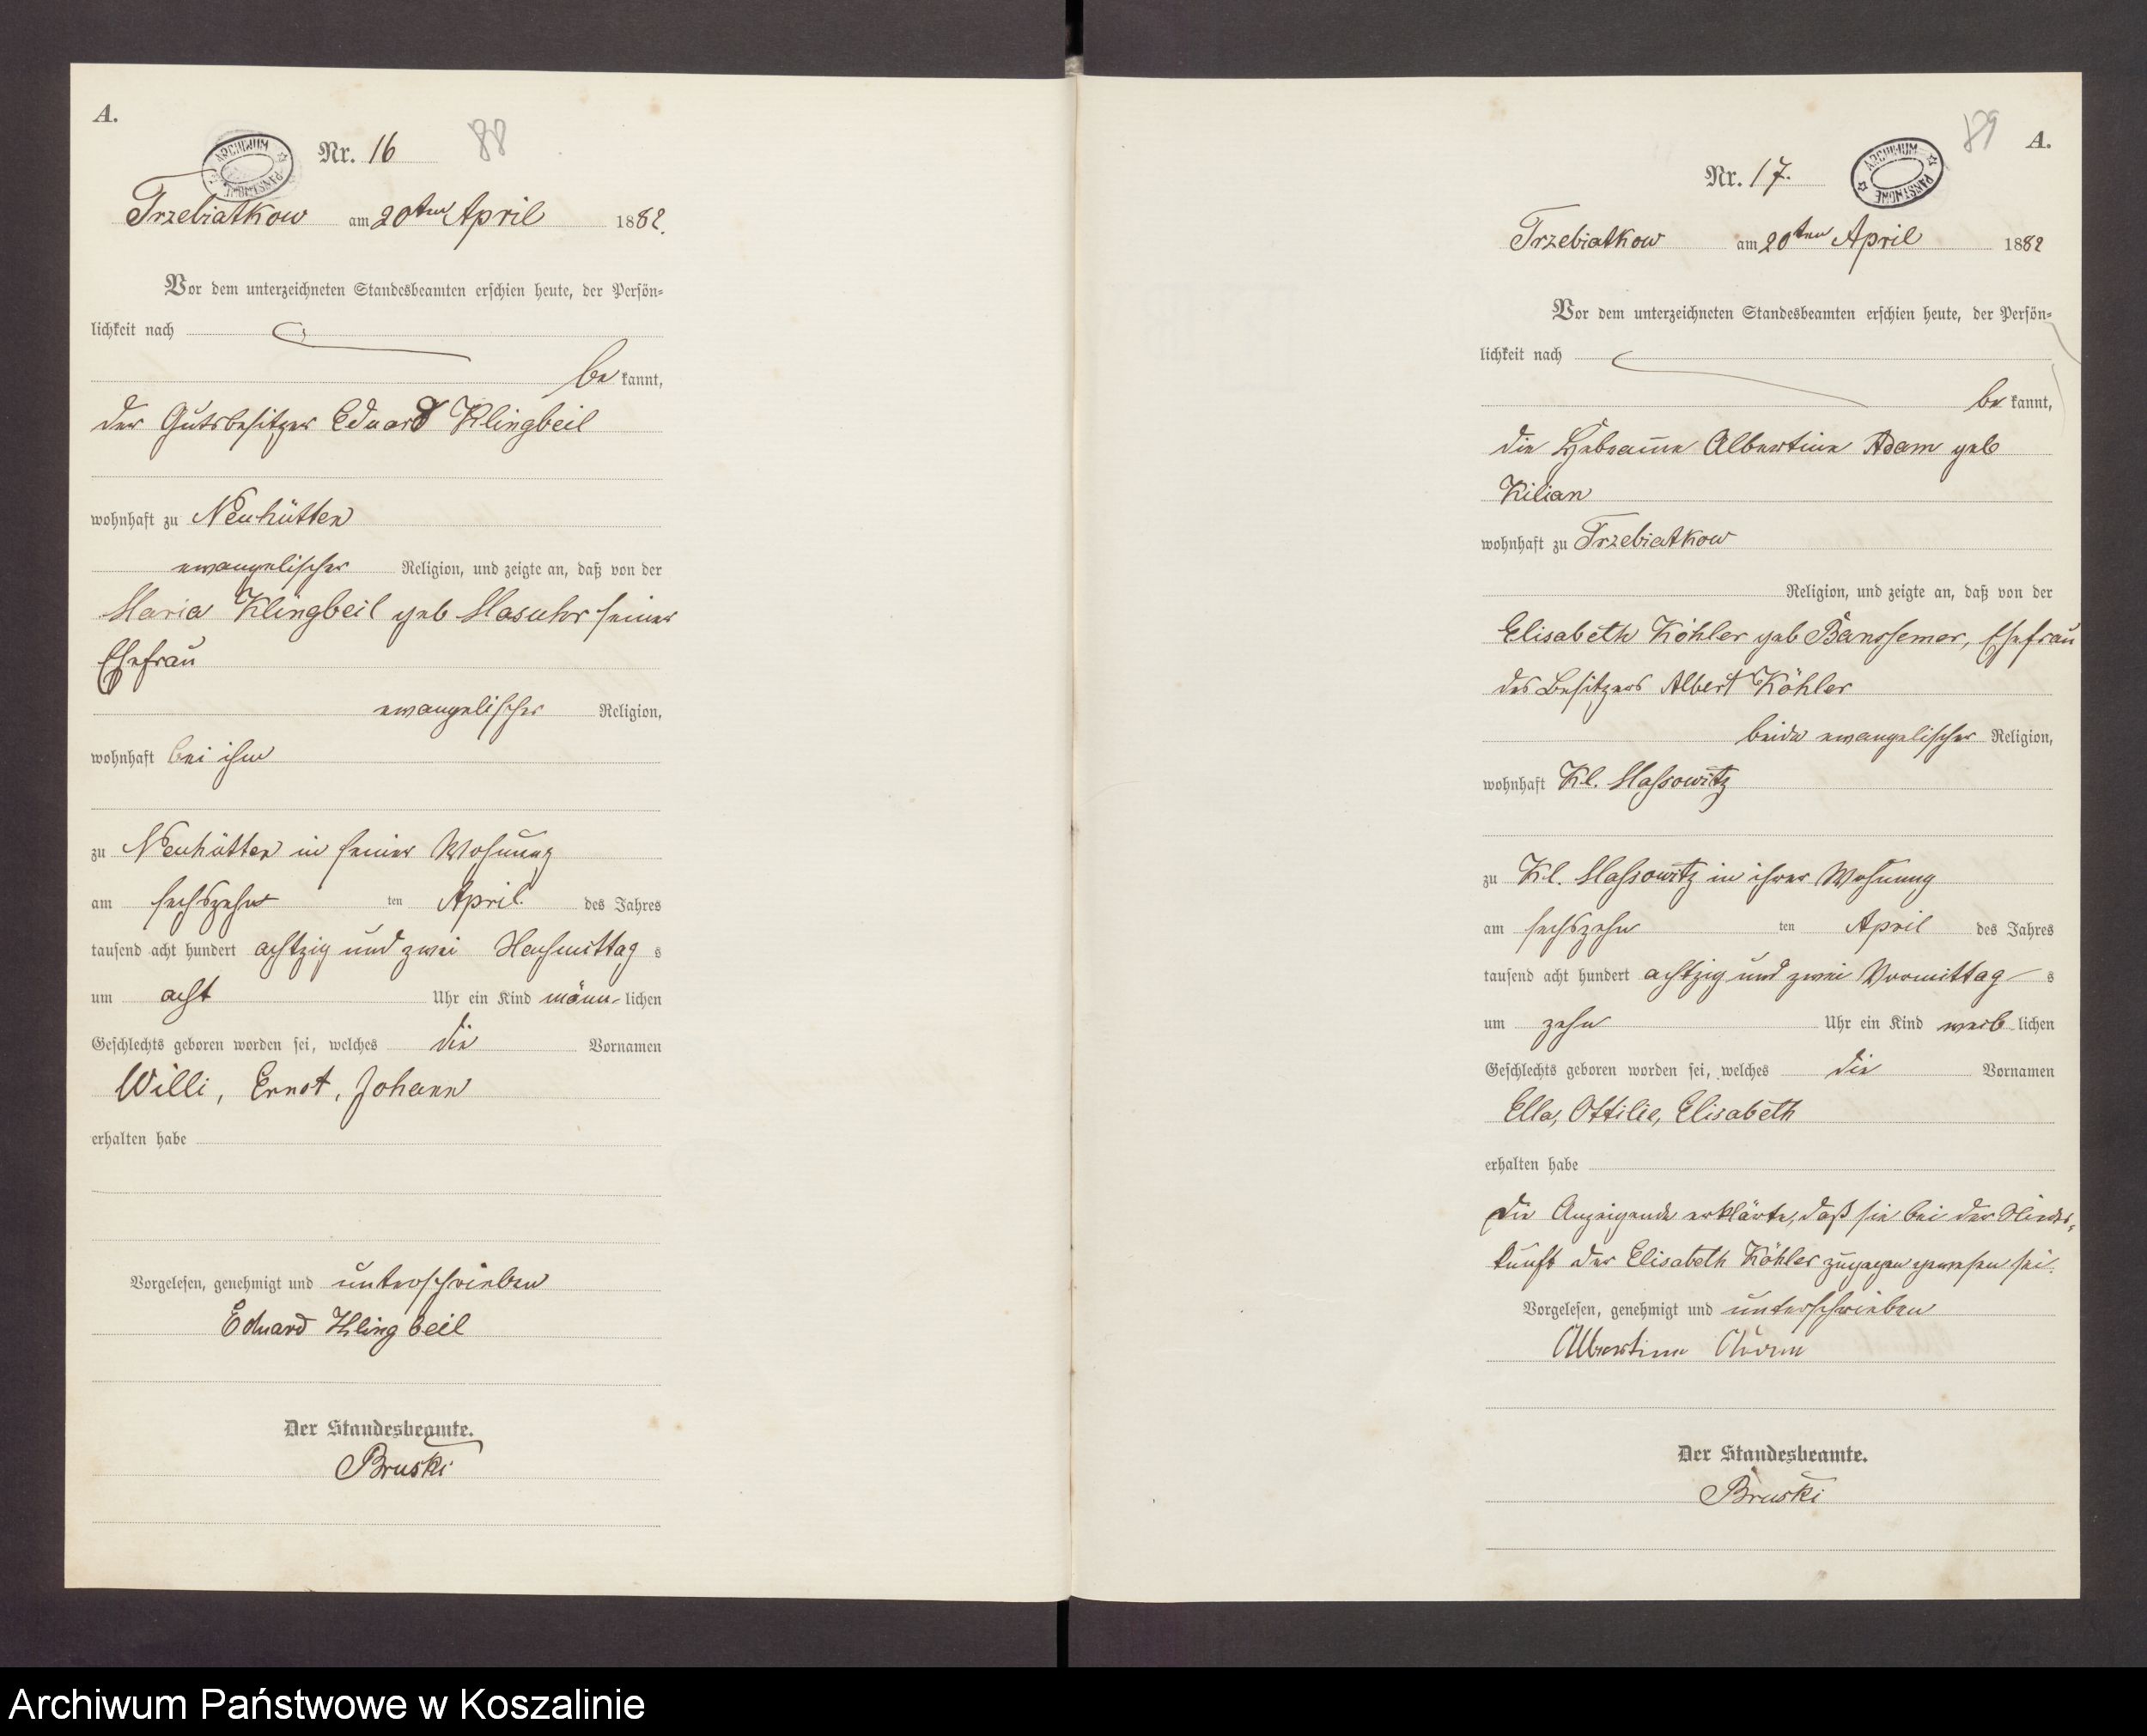 A.
ARCHIWUM PAŃSTWOWE
Nr. 16
88
Trzebiatkow am 20ten April 1882.
Vor dem unterzeichneten Standesbeamten erschien heute, der Persön-
lichkeit nach
be kannt,
der Gutsbesitzer Eduard Klingbeil
wohnhaft zu Neuhütten
evangelischer Religion, und zeigte an, daß von der
Maria Klingbeil geb Masuhr seiner
Ehefrau
evangelischer Religion,
wohnhaft bei ihm
zu Neuhütten in seiner Wohnung
am sechszehn ten April des Jahres
tausend acht hundert achtzig und zwei Nachmittag s
um acht Uhr ein Kind männ- lichen
Geschlechts geboren worden sei, welches die Vornamen
Willi, Ernst, Johann
erhalten habe
Vorgelesen, genehmigt und unterschrieben
Eduard Klingbeil
Der Standesbeamte.
Bruski
89
A.
Nr. 17.
ARCHIWUM PAŃSTWOWE
Trzebiatkow am 20ten April 1882
Vor dem unterzeichneten Standesbeamten erschien heute, der Persön-
lichkeit nach
be kannt,
die Hebeam̅e Albertine Adam geb
Kilian
wohnhaft zu Trzebiatkow
Religion, und zeigte an, daß von der
Elisabeth Köhler geb Banssemer, Ehefrau
des Besitzers Albert Köhler
beide evangelischer Religion,
wohnhaft Kl. Massowitz
zu Kl. Massowitz in ihrer Wohnung
am sechszehn ten April des Jahres
tausend acht hundert achtzig und zwei Vormittag s
um zehn Uhr ein Kind weib lichen
Geschlechts geboren worden sei, welches die Vornamen
Ella, Ottilie, Elisabeth
erhalten habe
Die Anzeigende erklärte, daß sie bei der Nieder-
kunft der Elisabeth Köhler zugegen gewesen sei.
Vorgelesen, genehmigt und unterschrieben
Albertine Adam
Der Standesbeamte.
Bruski
Archiwum Państwowe w Koszalinie